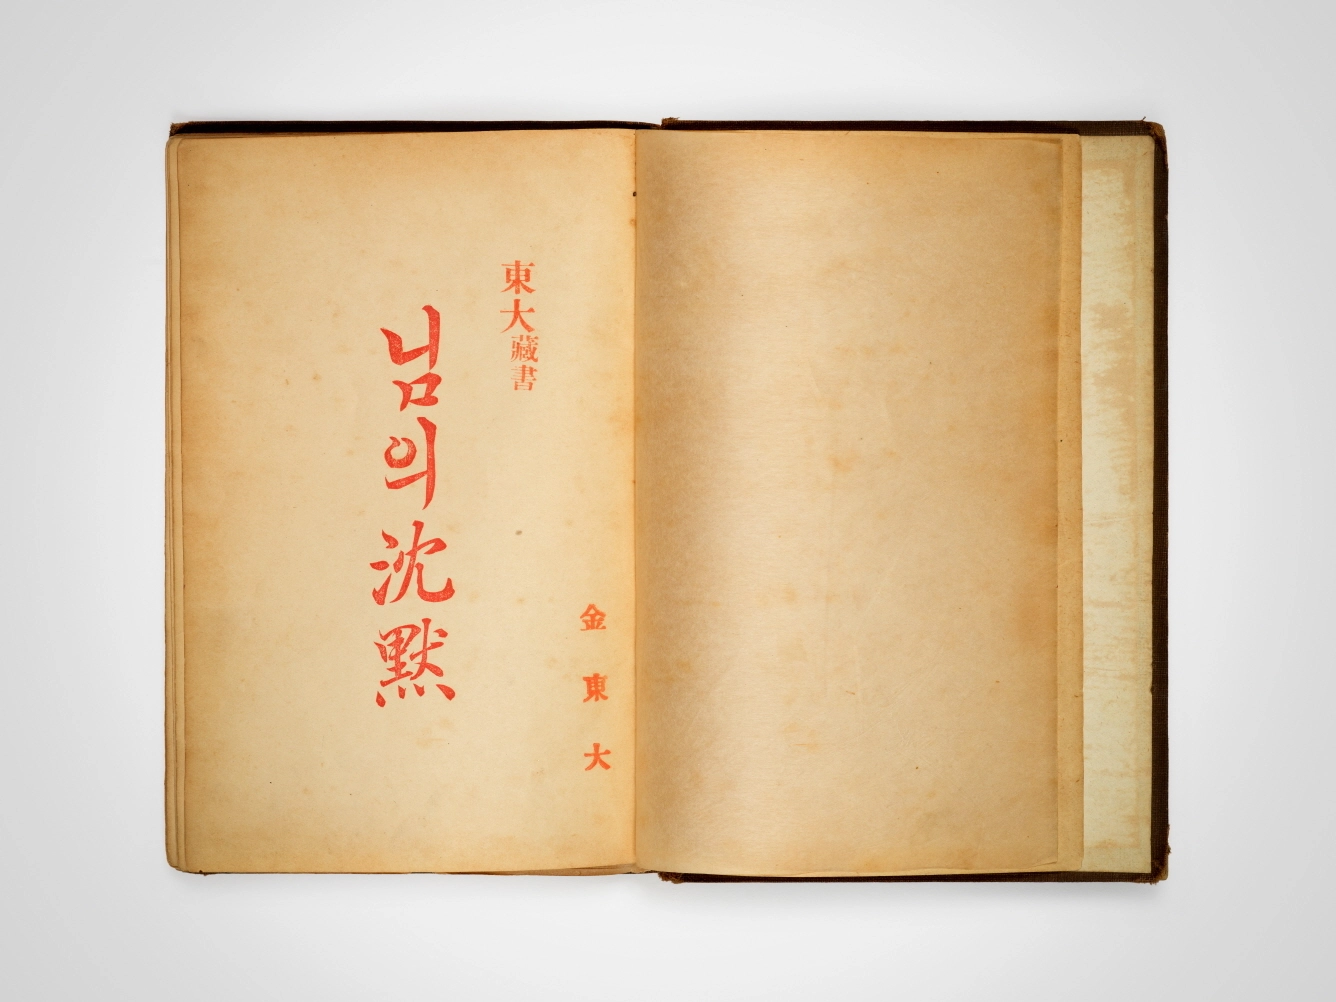 東大藏書
님의沈默
金東大